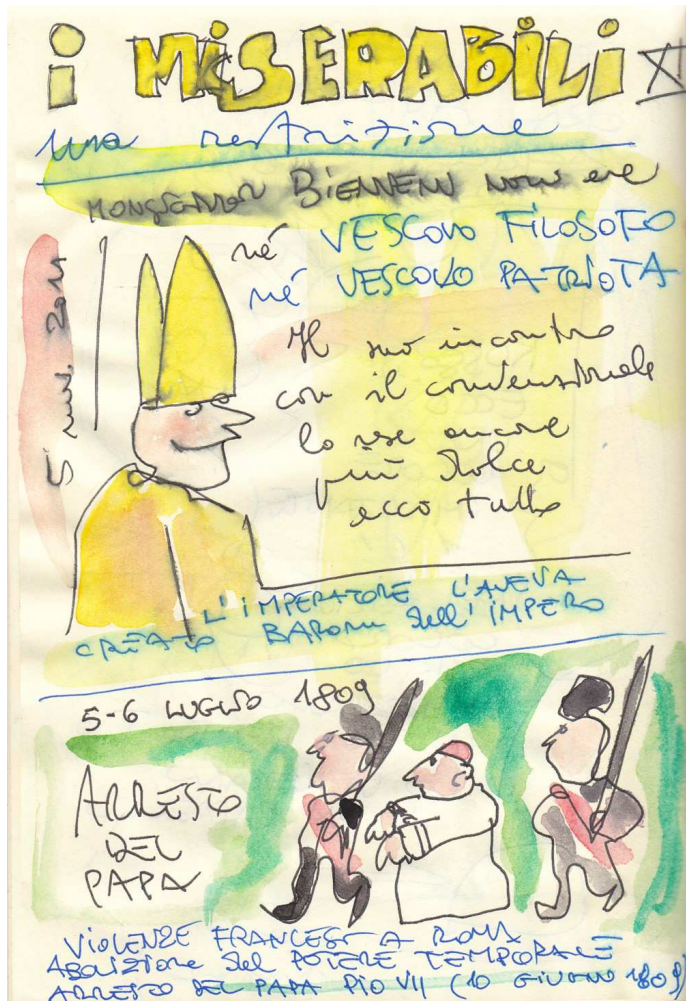 i MiSERABiLi XI
una restrizione
MONSIGNOR BiENVENU non era
né VESCOVO FiLOSOFO
né VESCOVO PATRiOTA
Il suo incontro
con il convenzionale
lo rese ancora
più dolce
ecco tutto
5 2011
L'iMPERATORE L'AVEVA
CREATO BARONE dell'iMPERO
5-6 LUGLIO 1809
ARRESTO
DEL
PAPA
ViOLENZE FRANCESI A ROMA
ABOLIZIONE del POTERE TEMPORALE
ARRESTO DEL PAPA PiO VII (10 GIUGNO 1809)